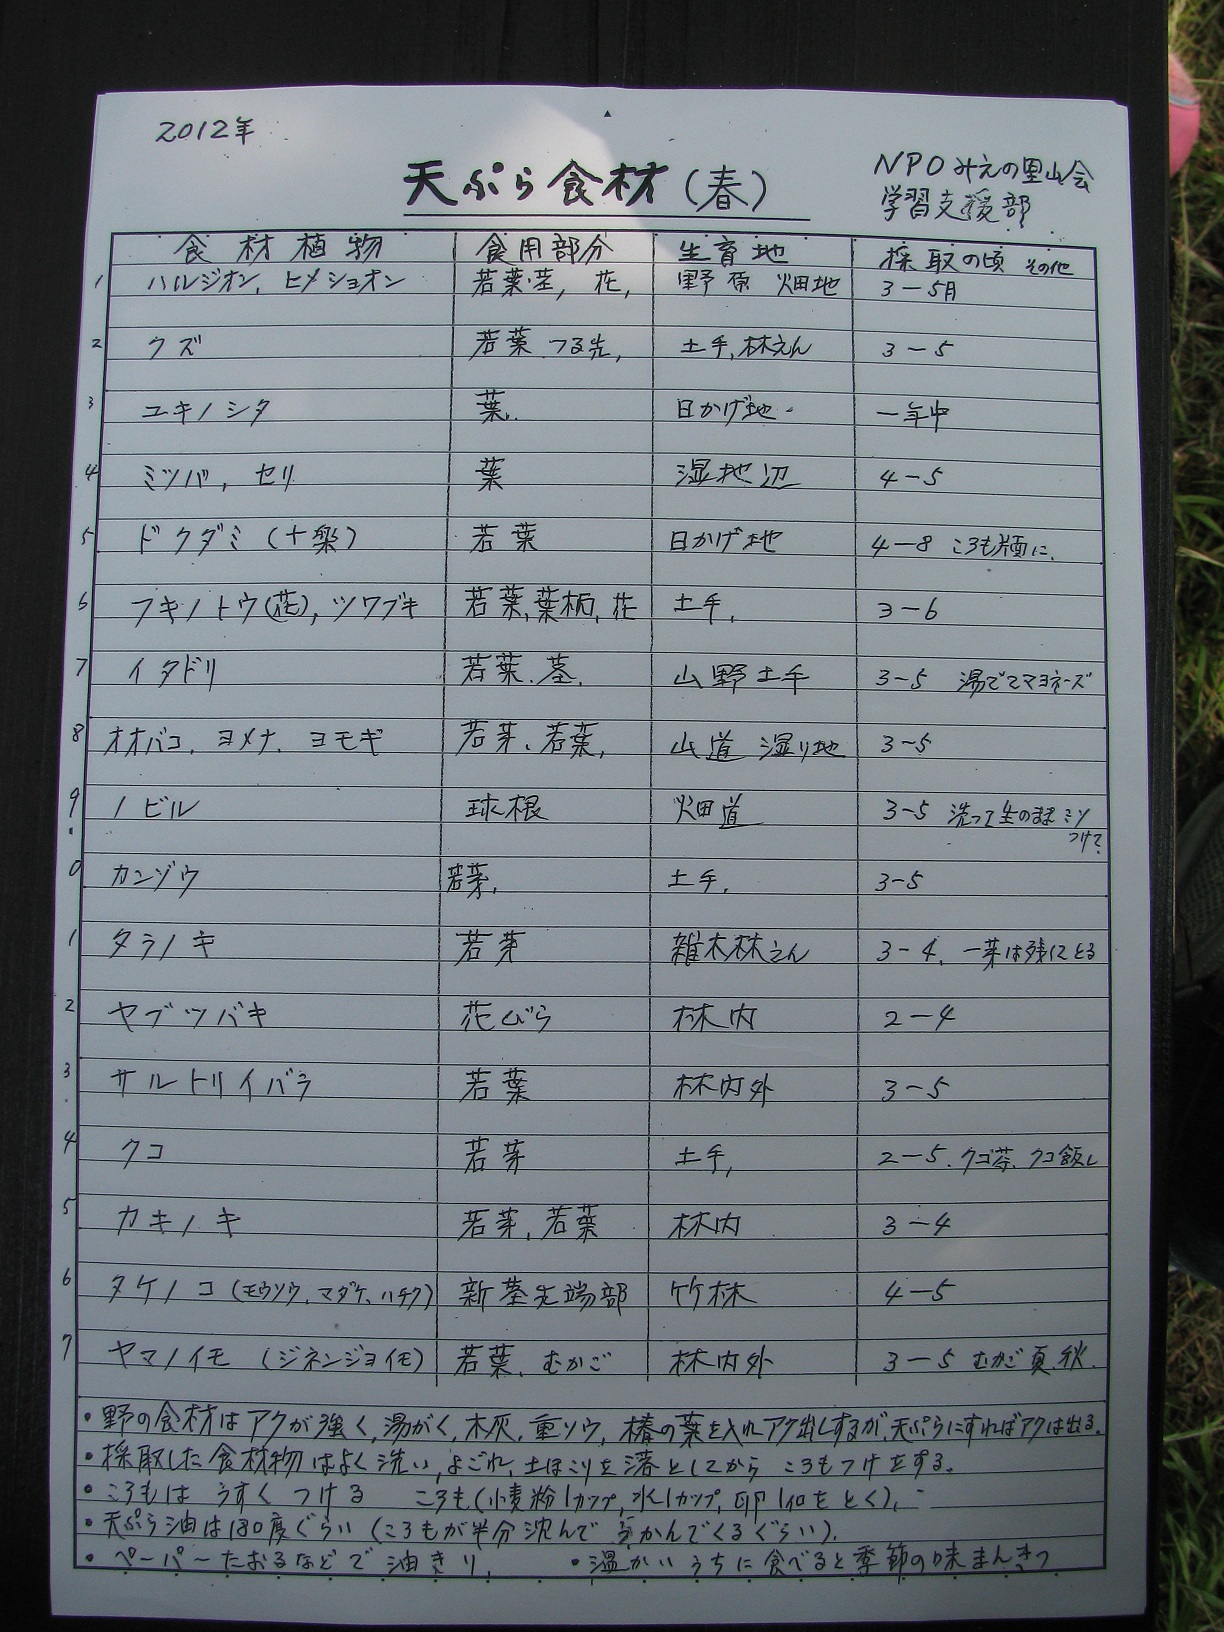 2012年
天ぷら食材(春)
NPOみえの里山会
学習支援部
食材植物 食用部分 生育地 採取の頃 その他
1 ハルジオン, ヒメショオン 若葉・茎, 花, 野原 畑地 3-5月
2 クズ 若葉 つる先, 土手, 林えん 3-5
3 ユキノシタ 葉, 日かげ地 一年中
4 ミツバ, セリ 葉 湿地辺 4-5
5 ドクダミ (十薬) 若葉 日かげ地 4-8 ころも片面に.
6 フキノトウ(花), ツワブキ 若葉, 葉柄, 花 土手, 3-6
7 イタドリ 若葉. 茎. 山野土手 3-5 湯でてマヨネーズ
8 オオバコ, ヨメナ. ヨモギ 若芽, 若葉, 山道 湿り地 3-5
9 ノビル 球根 畑道 3-5 洗って生のまま ミソ
つけて
0 カンゾウ 若芽, 土手, 3-5
1 タラノキ 若芽 雑木林えん 3-4. 一芽は残にとる
2 ヤブツバキ 花びら 林内 2-4
3 サルトリイバラ 若葉 林内外 3-5
4 クコ 若芽 土手, 2-5. クコ茶. クコ飯し
5 カキノキ 若芽, 若葉 林内 3-4
6 タケノコ (モウソウ, マダケ, ハチク) 新茎先端部 竹林 4-5
7 ヤマノイモ (ジネンジョイモ) 若葉. むかご 林内外 3-5 むかご 夏. 秋.
・野の食材はアクが強く, 湯がく, 木灰, 重ソウ, 椿の葉を入れアク出しするが, 天ぷらにすればアクは出る.
・採取した食材物はよく洗い, よごれ, 土ほこりを落としてから ころもつけをする.
・ころもは うすく つける ころも(小麦粉1カップ, 水1カップ, 卵1個をとく),
・天ぷら油は180度ぐらい (ころもが半分沈んで浮かんでくるぐらい).
・ペーパーたおるなどで油きり. ・温かいうちに食べると季節の味まんきつ